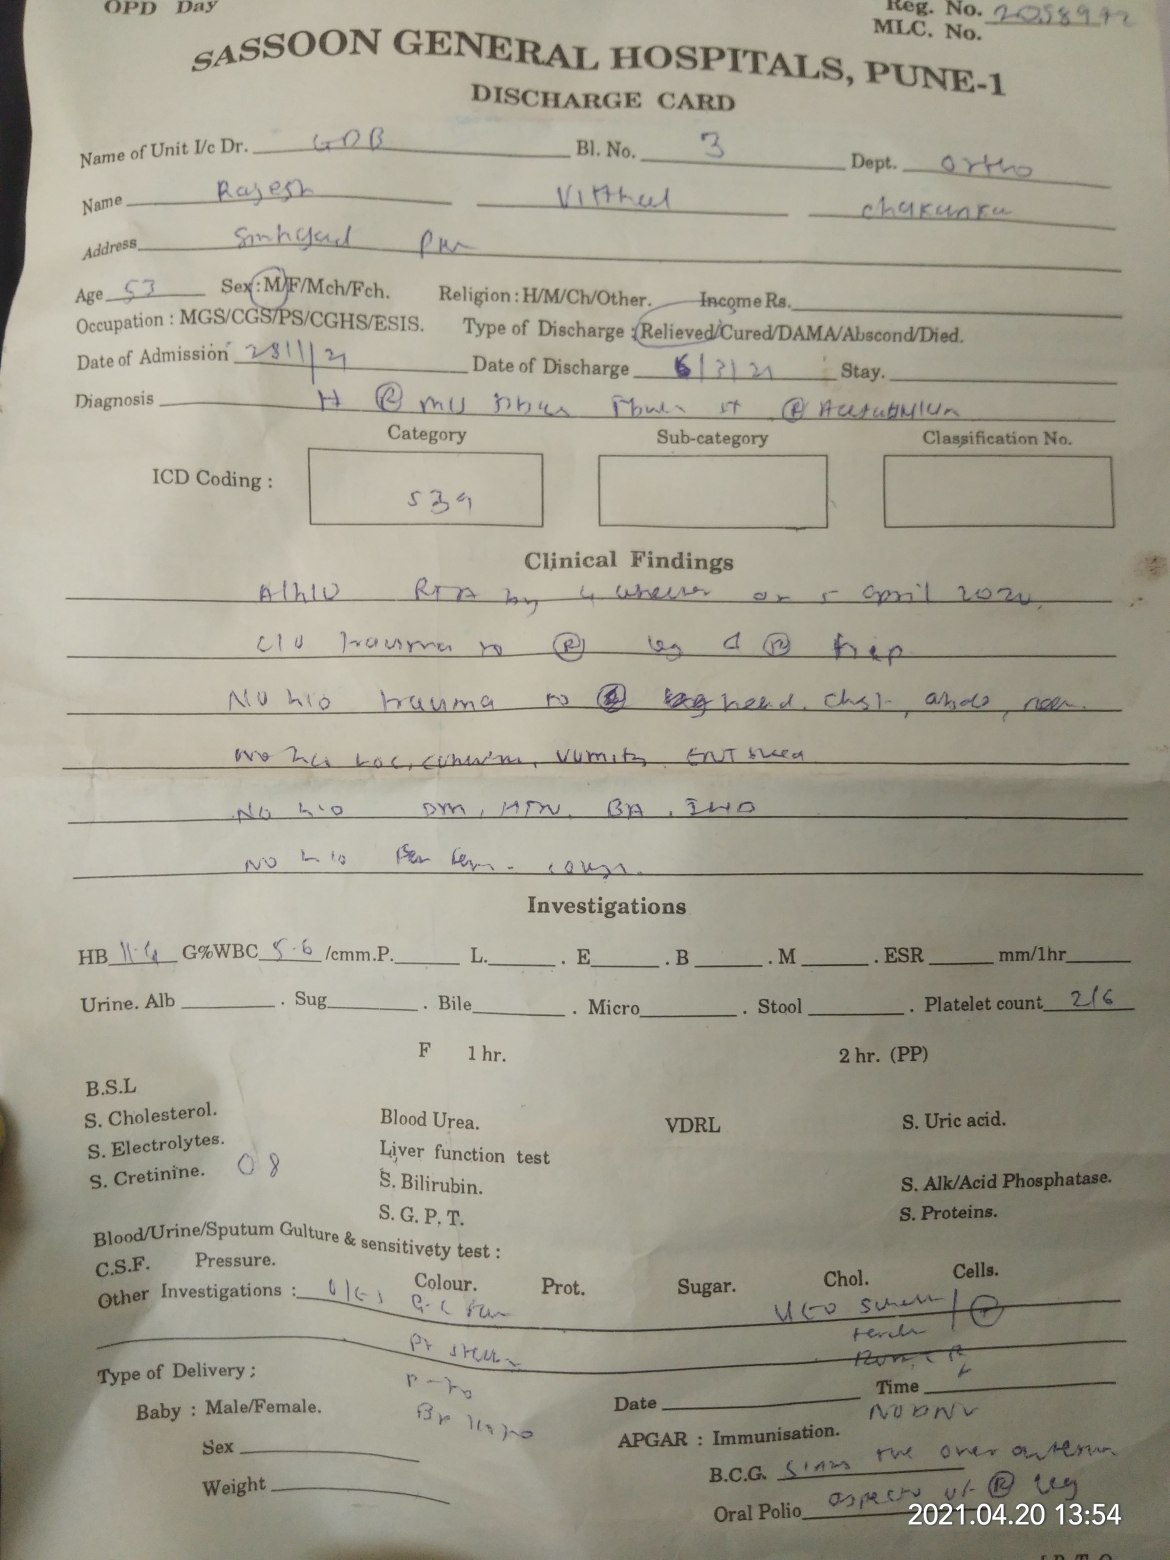 OPD Day
Reg. No. 2058992
MLC. No.
SASSOON GENERAL HOSPITALS, PUNE-1
DISCHARGE CARD
Name of Unit I/c Dr. GDB Bl. No. 3 Dept. Ortho
Name Rajesh Vitthal
Address Sinhgad
Age 53 Sex : M/F/Mch/Fch. Religion : H/M/Ch/Other. Income Rs.
Occupation : MGS/CGS/PS/CGHS/ESIS. Type of Discharge : Relieved/Cured/DAMA/Abscond/Died.
Date of Admission 28/1/21 Date of Discharge 6/3/21 Stay.
Diagnosis # Ⓡ Ⓡ Acetabulum
Category Sub-category Classification No.
ICD Coding :
539
Clinical Findings
A/h/o RTA by 4 wheeler on 5 april 2020
c/o trauma to Ⓡ leg & Ⓡ hip
No h/o trauma to head, chest, abdo,
No h/o LOC, vomits, ENT bleed
No h/o DM, HTN, BA, IHD
No h/o
Investigations
HB 11.4 G%WBC 5.6 /cmm.P. L. . E . B . M . ESR mm/1hr
Urine. Alb . Sug . Bile . Micro . Stool . Platelet count 216
F 1 hr. 2 hr. (PP)
B.S.L
S. Cholesterol. Blood Urea. VDRL S. Uric acid.
S. Electrolytes. Liver function test
S. Cretinine. 0 8 S. Bilirubin. S. Alk/Acid Phosphatase.
S. G. P. T. S. Proteins.
Blood/Urine/Sputum Gulture & sensitivety test :
C.S.F. Pressure. Colour. Prot. Sugar. Chol. Cells.
Other Investigations : O/E
Type of Delivery :
Date Time
Baby : Male/Female.
NO DNV
APGAR : Immunisation.
Sex
B.C.G. over anterior
Weight
Oral Polio aspect of Ⓡ leg
2021.04.20 13:54